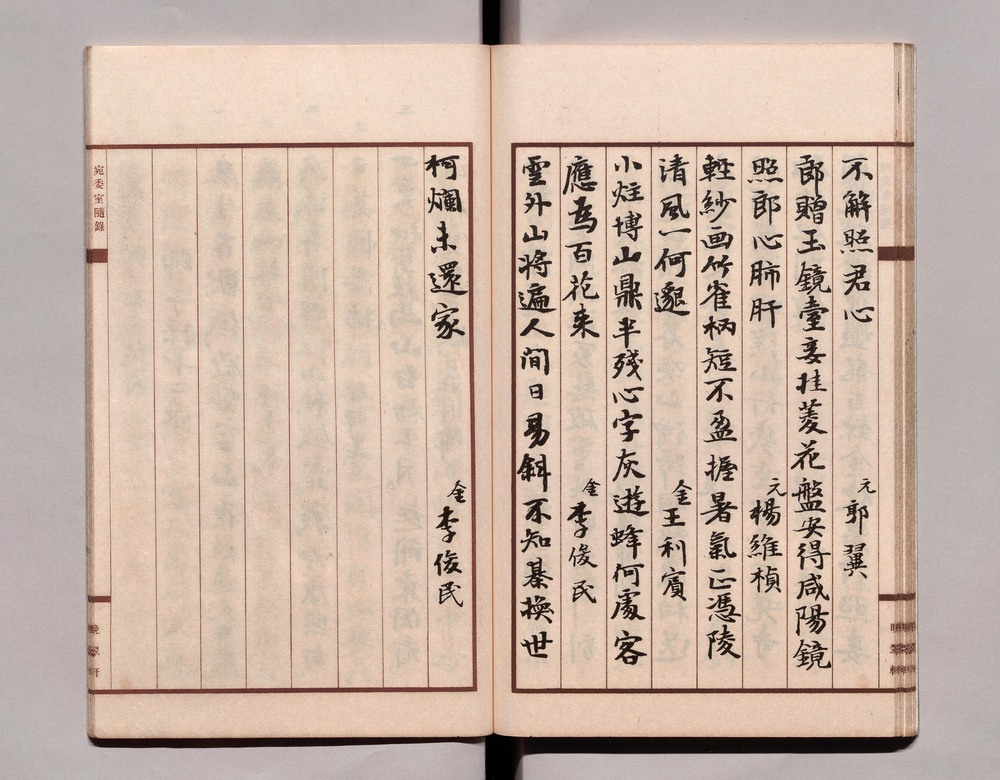 不解照君心
元 郭翼
郎贈玉鏡臺妾挂菱花盤安得咸陽鏡
照郎心肺肝
元 楊維楨
輕紗画竹雀柄短不盈握暑氣正憑陵
清風一何邈
金 王利賓
小炷博山鼎半殘心字灰遊蜂何處客
應為百花来
金 李俊民
雲外山将遍人間日易斜不知棊換世
柯爛未還家
金 李俊民
宛委室隨錄
晚翠軒